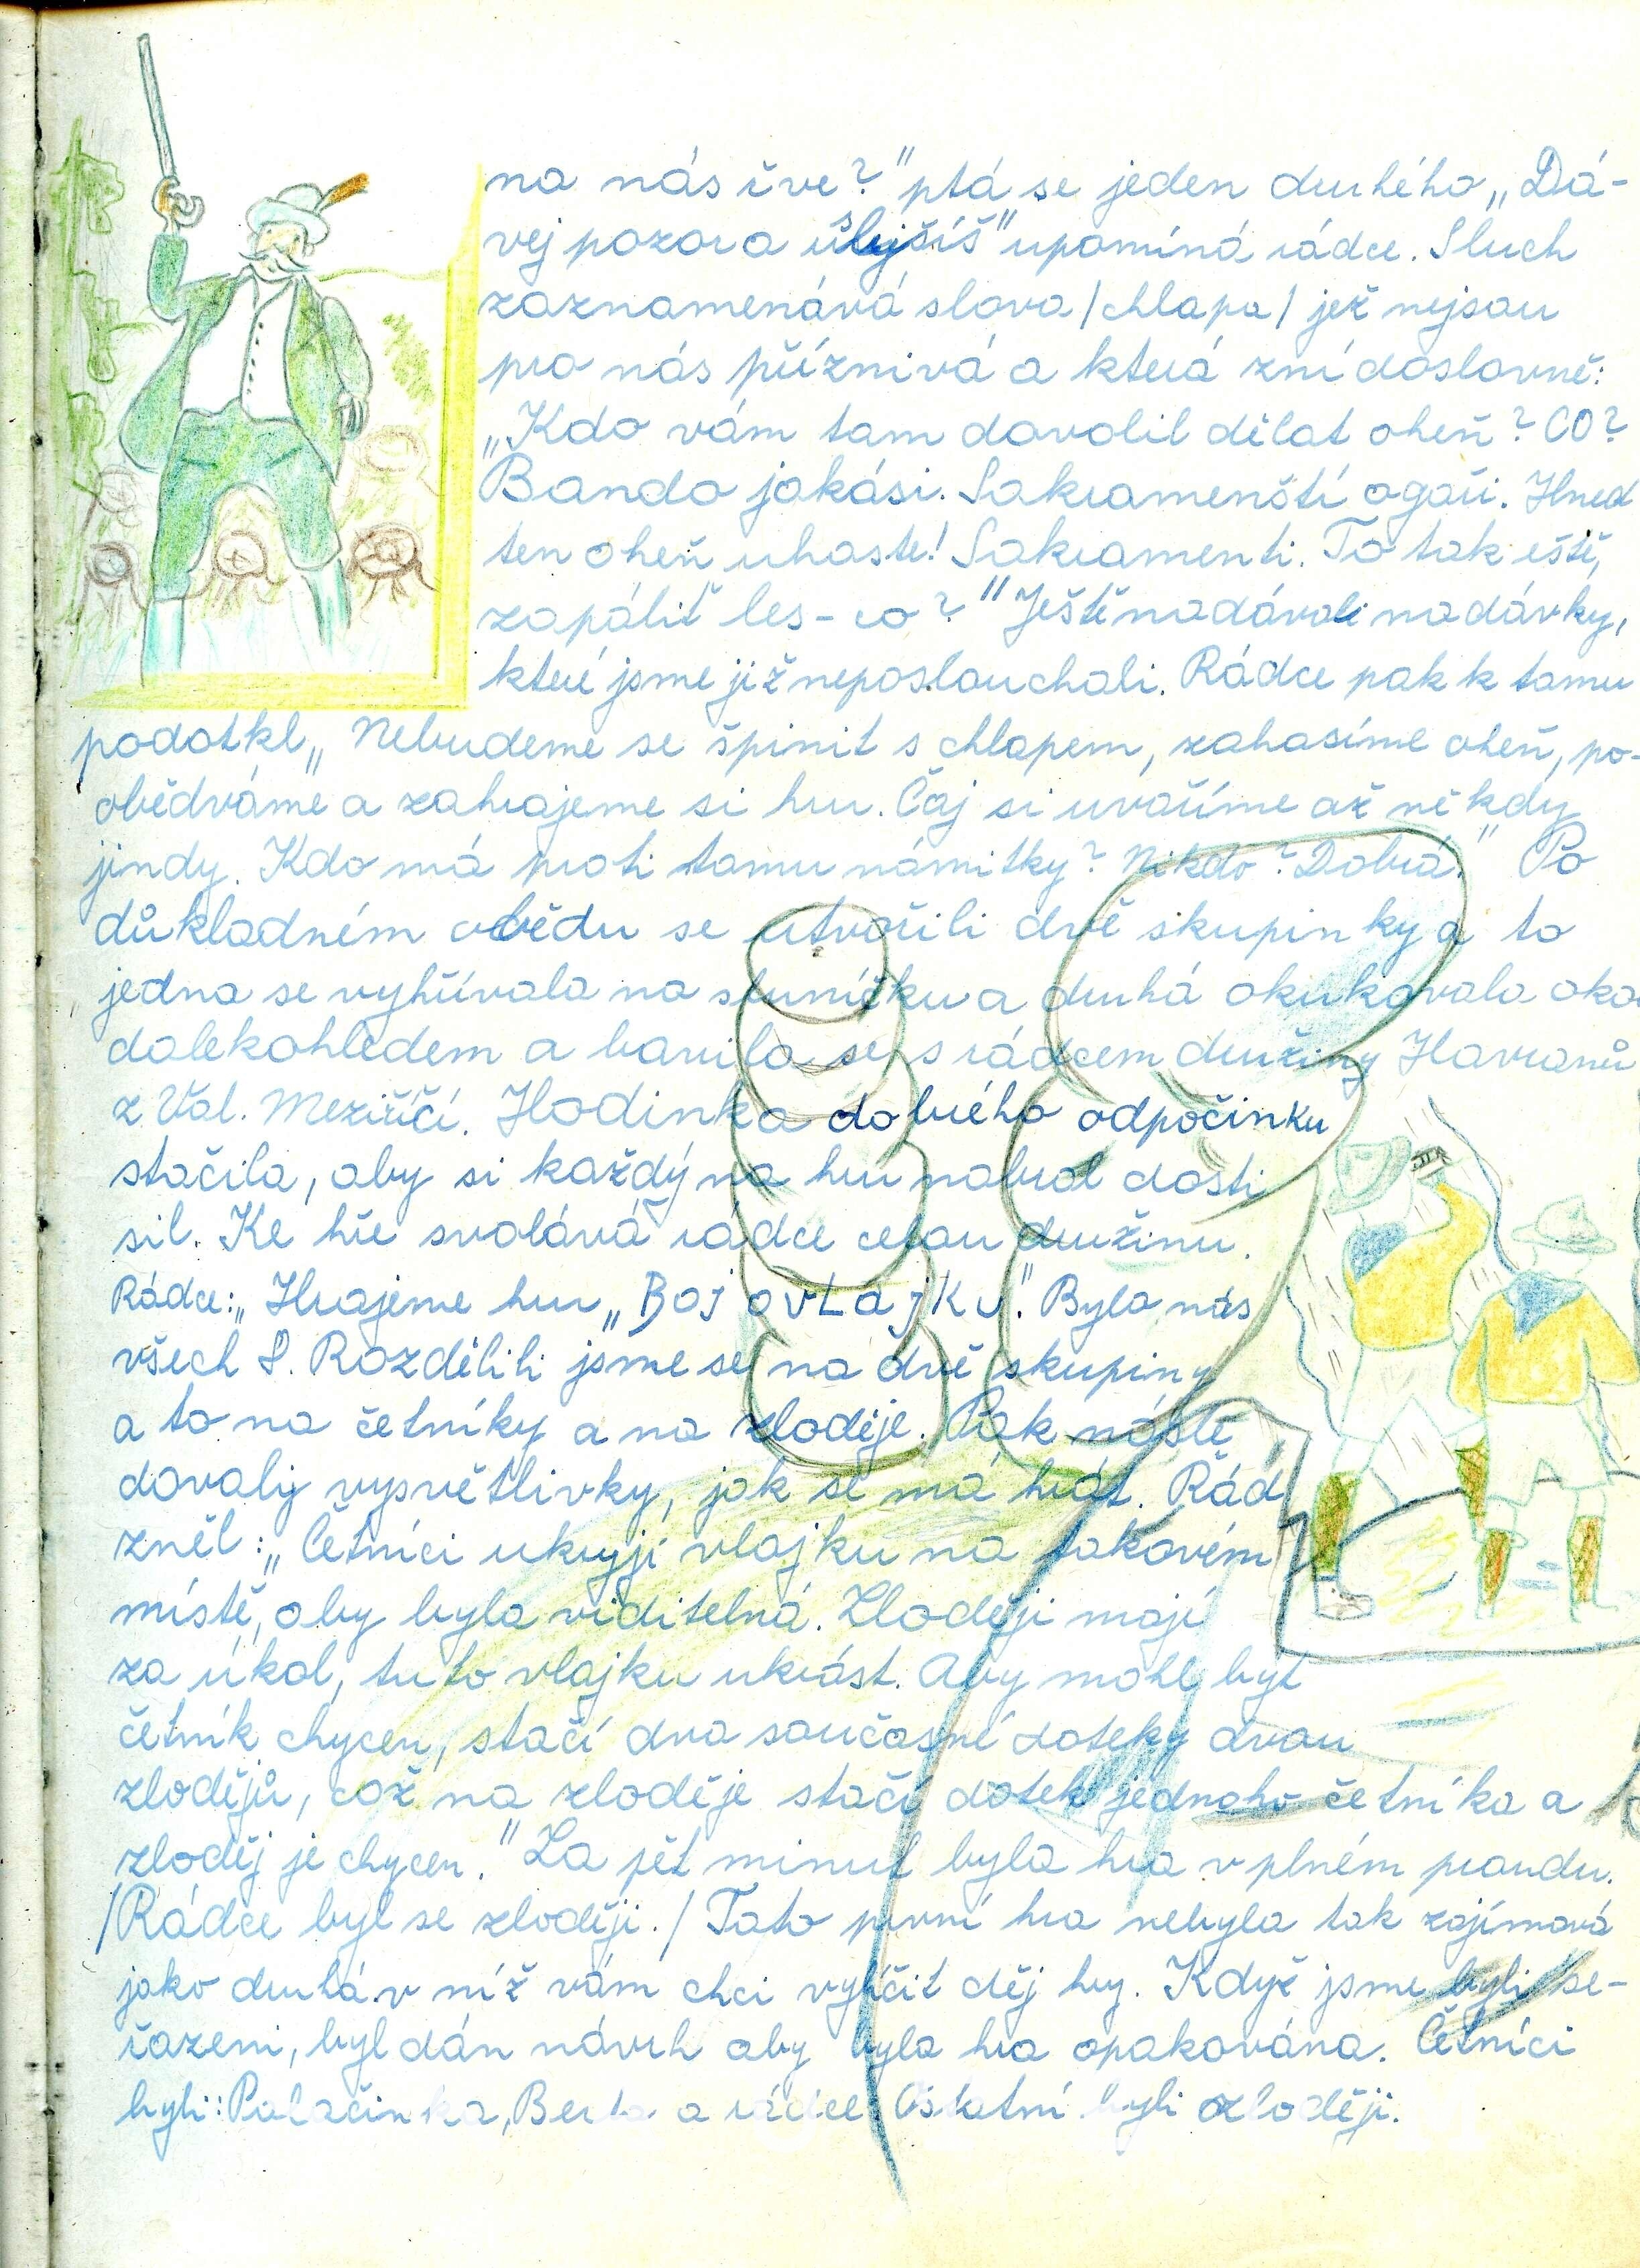 na nás řve?" ptá se jeden druhého „Dá-
vej pozor a uslyšíš" upomíná rádce. Sluch
zaznamenává slova /chlapa/ jež nejsou
pro nás příznivá a která zní doslovně:
„Kdo vám tam dovolil dělat oheň? CO?
Bando jakási. Sakramenští ogaři. Hned
ten oheň uhaste! Sakramenti. To tak eště,
zapálit les - co?" Ještě nadávali nadávky,
které jsme již neposlouchali. Rádce pak k tomu
podotkl „Nebudeme se špinit s chlapem, zahasíme oheň, po-
obědváme a zahrajeme si hru. Čaj si uvaříme až někdy
jindy. Kdo má proti tomu námitky? Nikdo? Dobrá." Po
důkladném obědu se utvořili dvě skupinky a to
jedna se vyhřívala na sluníčku a druhá okukovala oko
dalekohledem a bavila se s rádcem družiny Havranů
z Val. Meziříčí. Hodinka dobrého odpočinku
stačila, aby si každý na hru nabral dosti
sil. Ke hře svolává rádce celou družinu.
Rádce: „Hrajeme hru „BOJ O VLAJKU". Bylo nás
všech 8. Rozdělili jsme se na dvě skupiny
a to na četníky a na zloděje. Pak násle
dovaly vysvětlivky, jak se má hrát. Řád
zněl: „Četníci ukryjí vlajku na takovém
místě, aby byla viditelná. Zloději mají
za úkol, tuto vlajku ukrást. Aby mohl být
četník chycen, stačí dva současné doteky dvou
zlodějů, což na zloděje stačí dotek jednoho četníka a
zloděj je chycen." Za pět minut byla hra v plném proudu.
/Rádce byl se zloději./ Tato první hra nebyla tak zajímavá
jako druhá v níž vám chci vylíčit děj hry. Když jsme byli se-
řazeni, byl dán návrh aby byla hra opakována. Četníci
byli: Palačinka, Berta a rádce. Ostatní byli zloději.